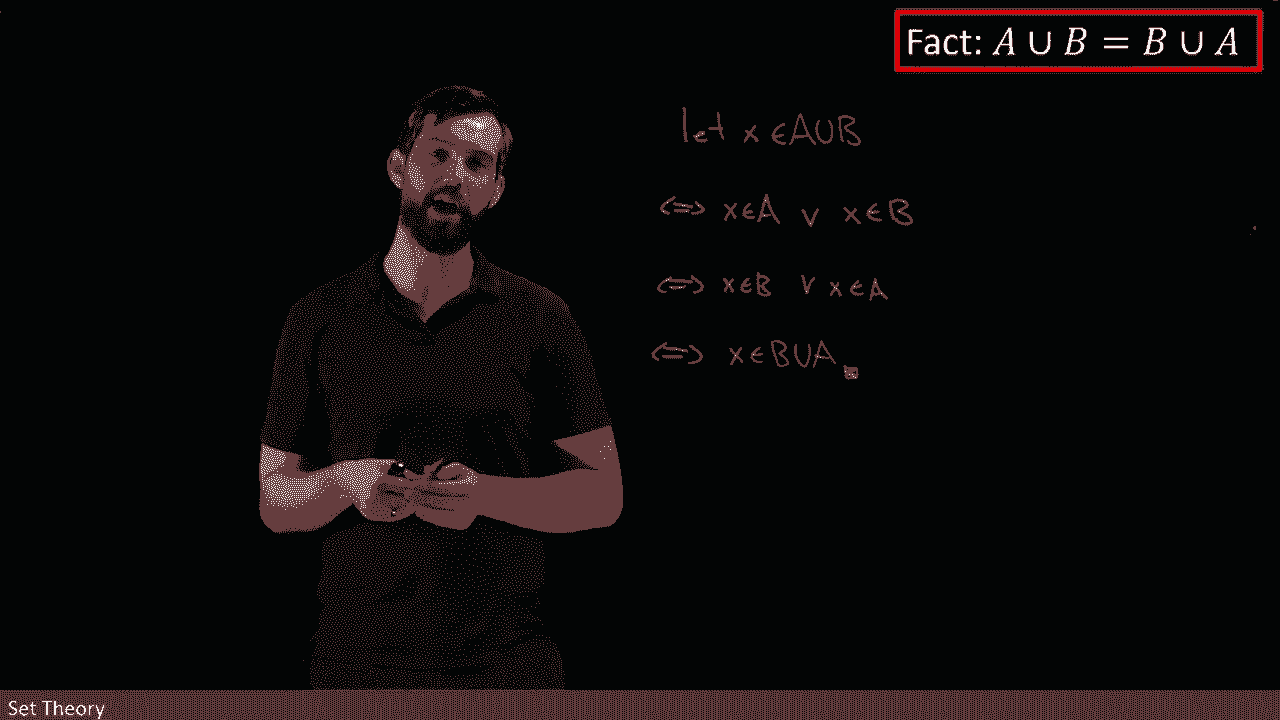 Fact: A ∪ B = B ∪ A
let x ∈ A∪B
⇔ x∈A ∨ x∈B
⇔ x∈B ∨ x∈A
⇔ x∈B∪A
Set Theory